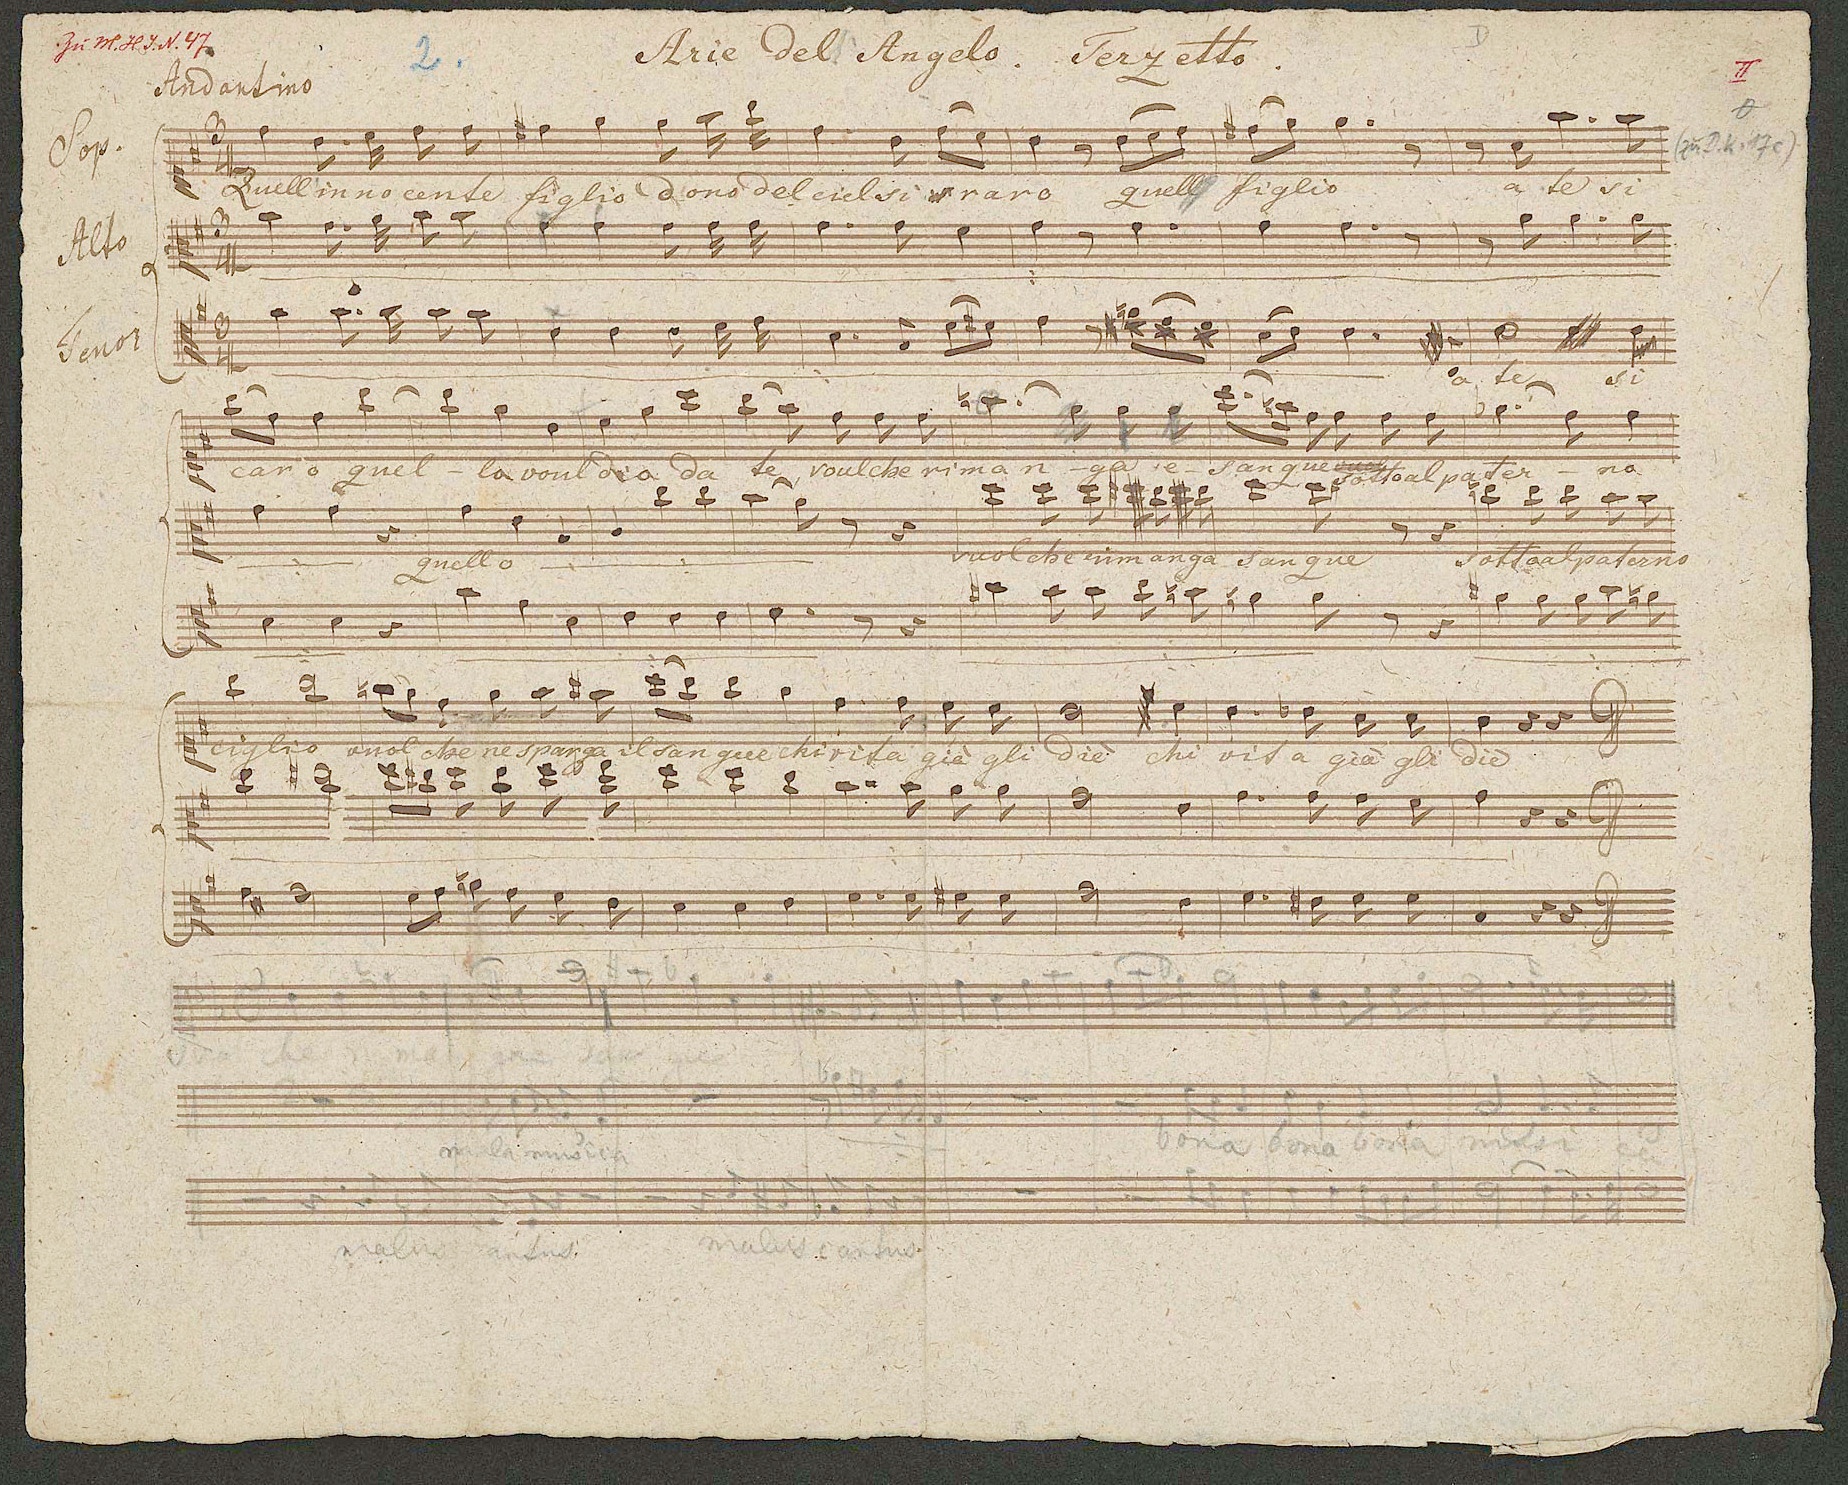 Zu M.H.I.N. 47
2.
Arie del Angelo. Terzetto.
II
Andantino
(zu D.K. 17c)
Sop.
Quell innocente figlio dono del ciel si raro quell figlio a te si
Alto
Tenor
a te si
caro quel - la voul dia da te, voul che riman - ga e - sangue sotto al pater - no
quello vuol che rimanga sangue sotto al paterno
ciglio vuol che ne sparga il sangue chi vita già gli diè chi vita già gli diè
che rima sangue
mala musica
bona bona bona
malus cantus. malus cantus.